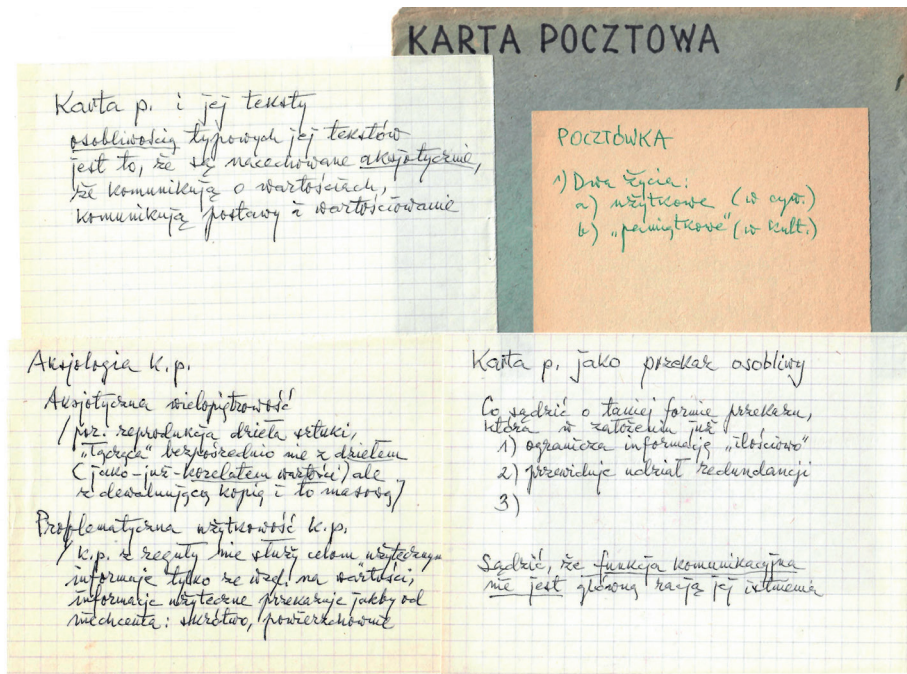 KARTA POCZTOWA
Karta p. i jej teksty
osobliwością typowych jej tekstów
jest to, że są nacechowane aksjotycznie,
że komunikują o wartościach,
komunikują postawy i wartościowanie
POCZTÓWKA
1) Dwa życia:
a) użytkowe (w cyw.)
b) „pamiątkowe" (w kult.)
Aksjologia k.p.
Aksjotyczna wielopiętrowość
/por. reprodukcja dzieła sztuki,
„łącząca" bezpośrednio nie z dziełem
(jako-już-korelatem wartości) ale
z dewaluującą kopią i to masową/
Problematyczna użytkowość k.p.
/k.p. z reguły nie służy celom użytecznym
informuje tylko ze wzgl. na wartości,
informacje użyteczne przekazuje jakby od
niechcenia: skrótowo, powierzchownie
Karta p. jako przekaz osobliwy
Co sądzić o takiej formie przekazu,
która w założeniu już
1) ogranicza informację „ilościowo"
2) przewiduje udział redundancji
3)
Sądzić, że funkcja komunikacyjna
nie jest główną racją jej istnienia